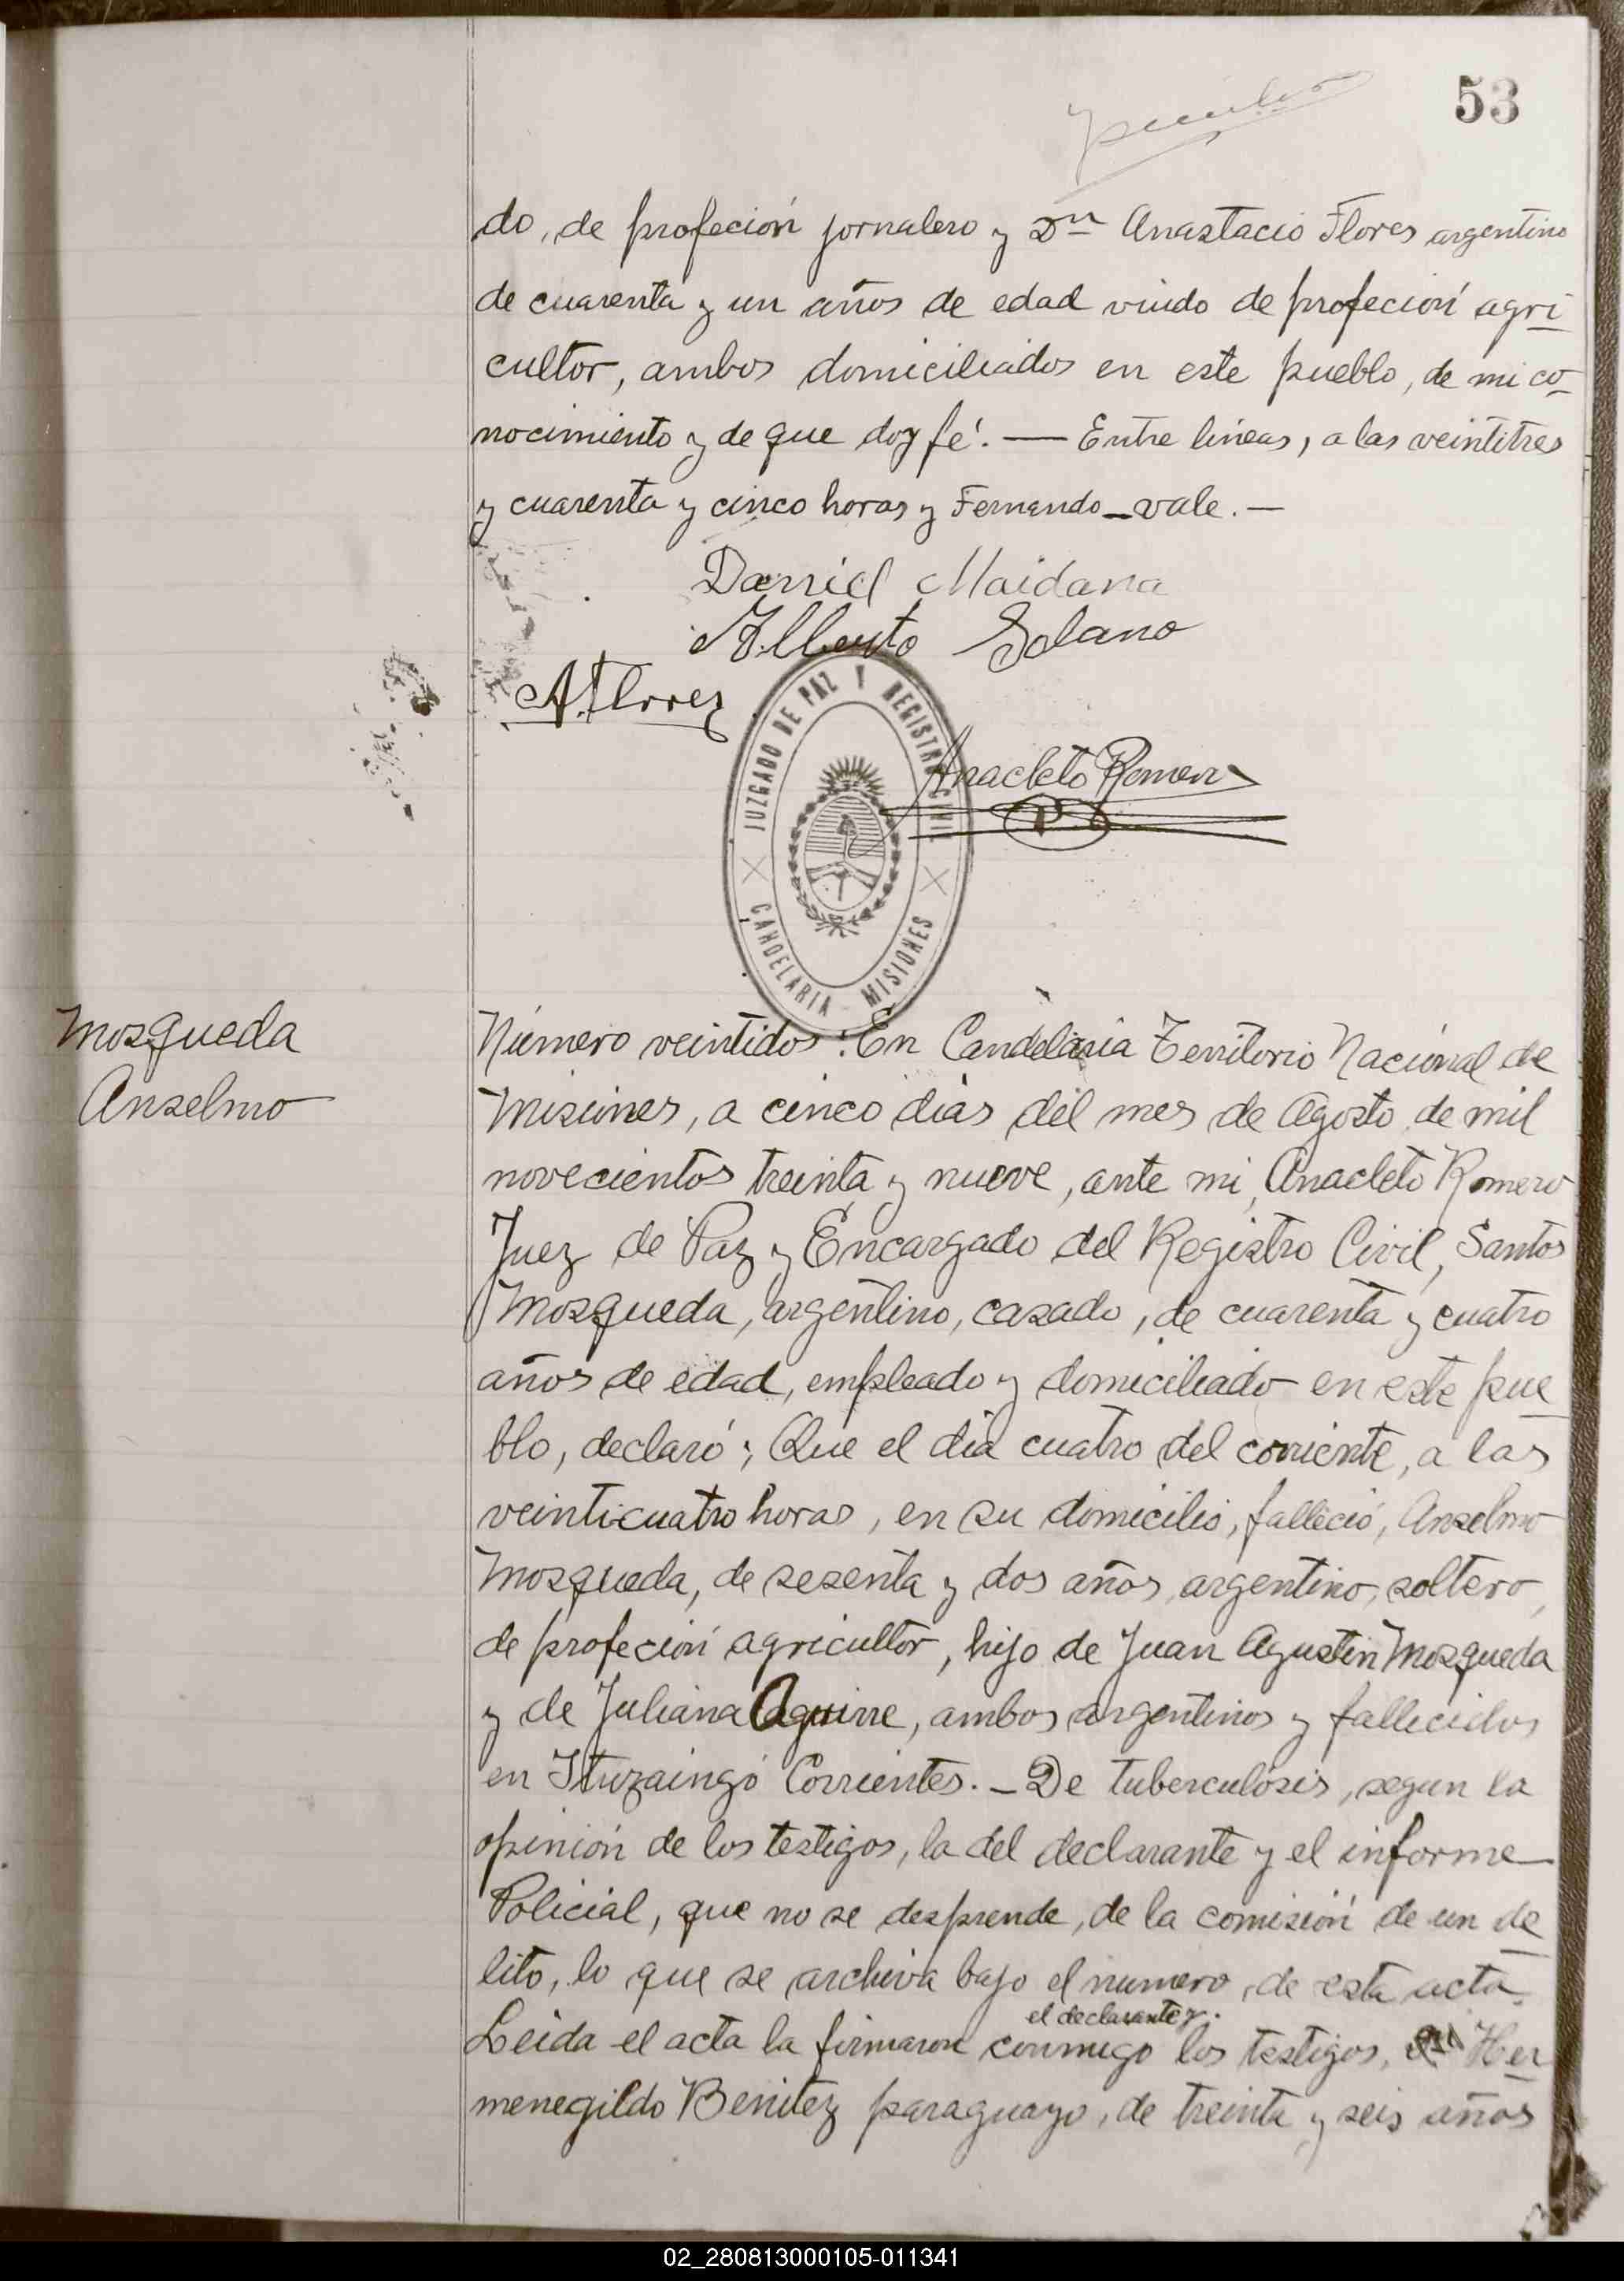 53
do, de profeción jornalero y Dn Anastacio Flores argentino
de cuarenta y un años de edad viudo de profeción agri
cultor, ambos domiciliados en este pueblo, de mi co-
nocimiento y de que doy fé. — Entre lineas, a las veintitres
y cuarenta y cinco horas y Fernando - vale. —
Daniel Maidana
Alberto Solano
A. Flores
JUZGADO DE PAZ Y REGISTRO CIVIL
CANDELARIA - MISIONES
Anacleto Romero
Mosqueda
Anselmo
Número veintidos: En Candelaria Territorio Nacional de
Misiones, a cinco dias del mes de Agosto de mil
novecientos treinta y nueve, ante mi, Anacleto Romero
Juez de Paz y Encargado del Registro Civil, Santos
Mosqueda, argentino, casado, de cuarenta y cuatro
años de edad, empleado y domiciliado en este pue
blo, declaró; Que el dia cuatro del corriente, a las
veinticuatro horas, en su domicilio, falleció, Anselmo
Mosqueda, de sesenta y dos años, argentino, soltero,
de profeción agricultor, hijo de Juan Agustin Mosqueda
y de Juliana Aguirre, ambos argentinos y fallecidos
en Ituzaingó Corrientes. - De tuberculosis, segun la
opinión de los testigos, la del declarante y el informe
Policial, que no se desprende, de la comisión de un de
lito, lo que se archiva bajo el numero, de esta acta.
el declarante y.
Leida el acta la firmaron conmigo los testigos, Her
menegildo Benitez paraguayo, de treinta y seis años
02_280813000105-011341